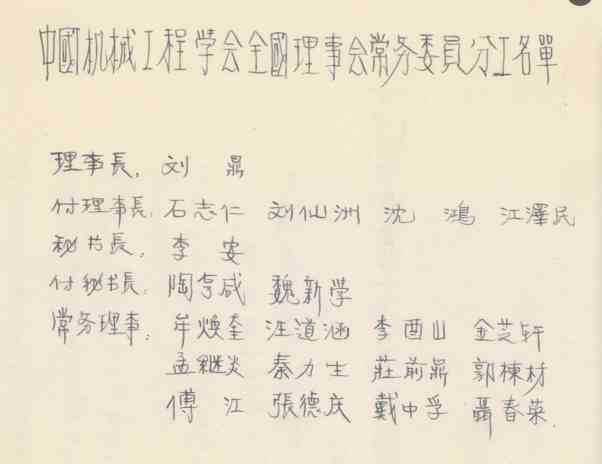 中國机械工程学会全國理事会常务委員分工名單
理事長. 刘 鼎
付理事長. 石志仁 刘仙洲 沈 鴻 江澤民
秘书長. 李 安
付秘书長. 陶亨咸 魏新学
常务理事. 牟焕奎 汪道涵 李酉山 金芝轩
孟継炎 秦力生 莊前鼎 郭棟材
傅 江 張德庆 戴中孚 聶春荣